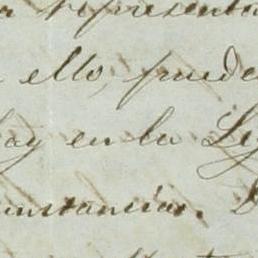 a representa
ello, puede
hay en la Le
unstancias. D